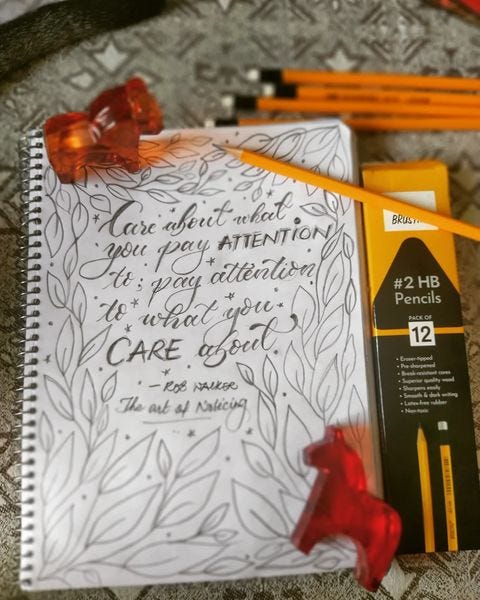 Care about what
you pay ATTENTION
to; pay attention
to what you
CARE about
- ROB WALKER
The art of Noticing
#2 HB
Pencils
PACK OF
12
• Eraser-tipped
• Pre-sharpened
• Break-resistant cores
• Superior quality wood
• Sharpens easily
• Smooth & dark writing
• Latex-free rubber
• Non-toxic